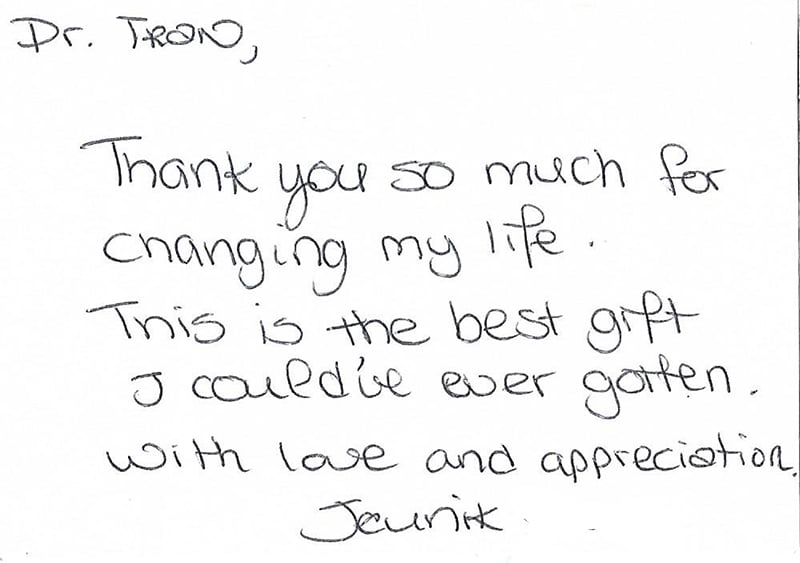 Dr. TRAN,
Thank you so much for
changing my life.
This is the best gift
I could've ever gotten.
with love and appreciation.
Jeunik